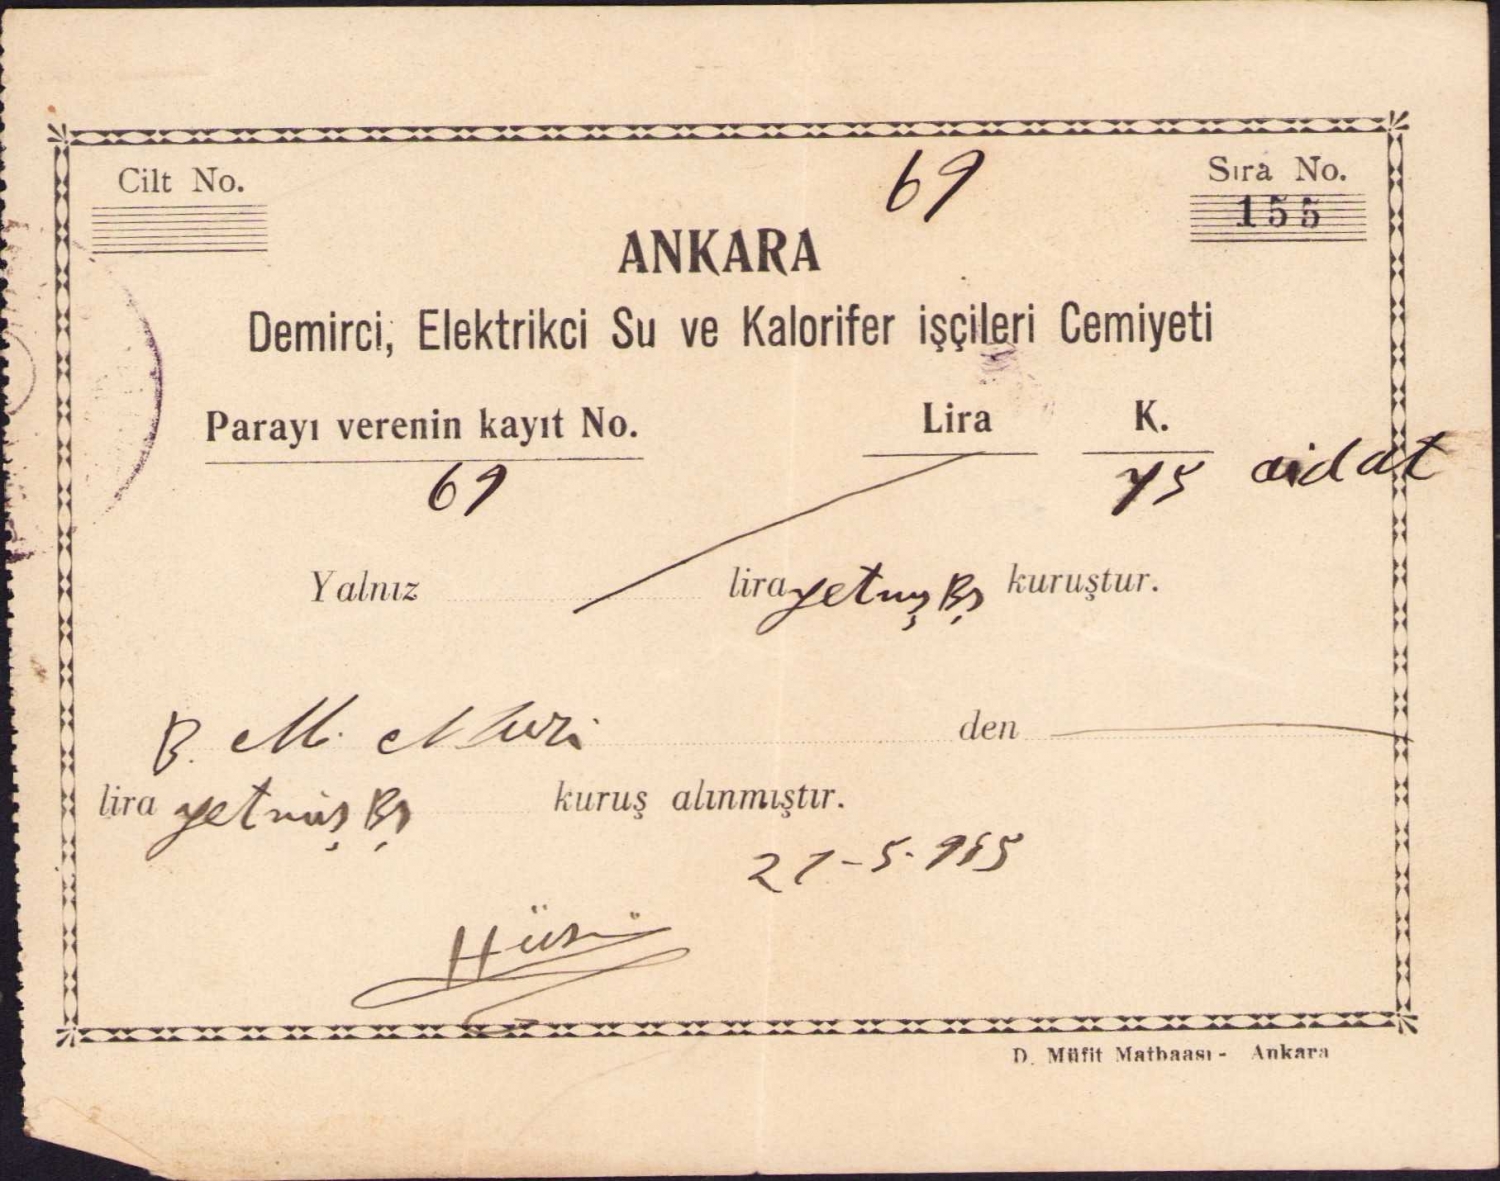 Cilt No.
69
Sıra No.
155
ANKARA
Demirci, Elektrikci Su ve Kalorifer işçileri Cemiyeti
Parayı verenin kayıt No. Lira K.
69 75 aidat
Yalnız lira yetmiş Bş kuruştur.
B. M. Nuri den
lira yetmiş Bş kuruş alınmıştır.
21-5-935
Hüsnü
D. Müfit Matbaası - Ankara